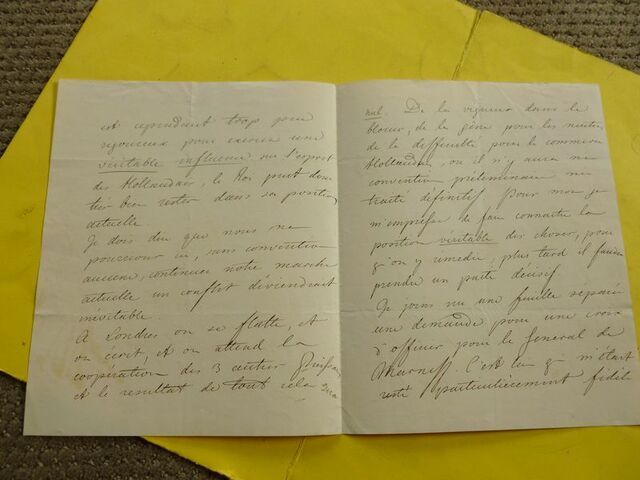 est cependant trop peu
rigoureux pour exercer une
véritable influence sur l'esprit
des Hollandais, le Roi peut donc
très bien rester dans sa position
actuelle.
Je dois dire que nous ne
pourrons ici, sans convention
aucune, continuer notre marche
actuelle un conflit deviendrait
inévitable.
A Londres on se flatte, et
on croit, et on attend la
coopération des 3 autres
et le resultat de tout cela sera
nul. De la vigueur dans le
blocus, de la gène pour les
de la difficulté pour le commerce
Hollandais, où il n'y aura ni
convention préliminaire ni
traité définitif. Pour moi je
m'empresse de faire connaitre la
position véritable des choses, pour
qu'on y remedie, plus tard il faudra
prendre un parti décisif.
Je joins ici une feuille separée
une demande pour une croix
d'officier pour le General de
C'est lui qui m'était
resté particulièrement fidèle